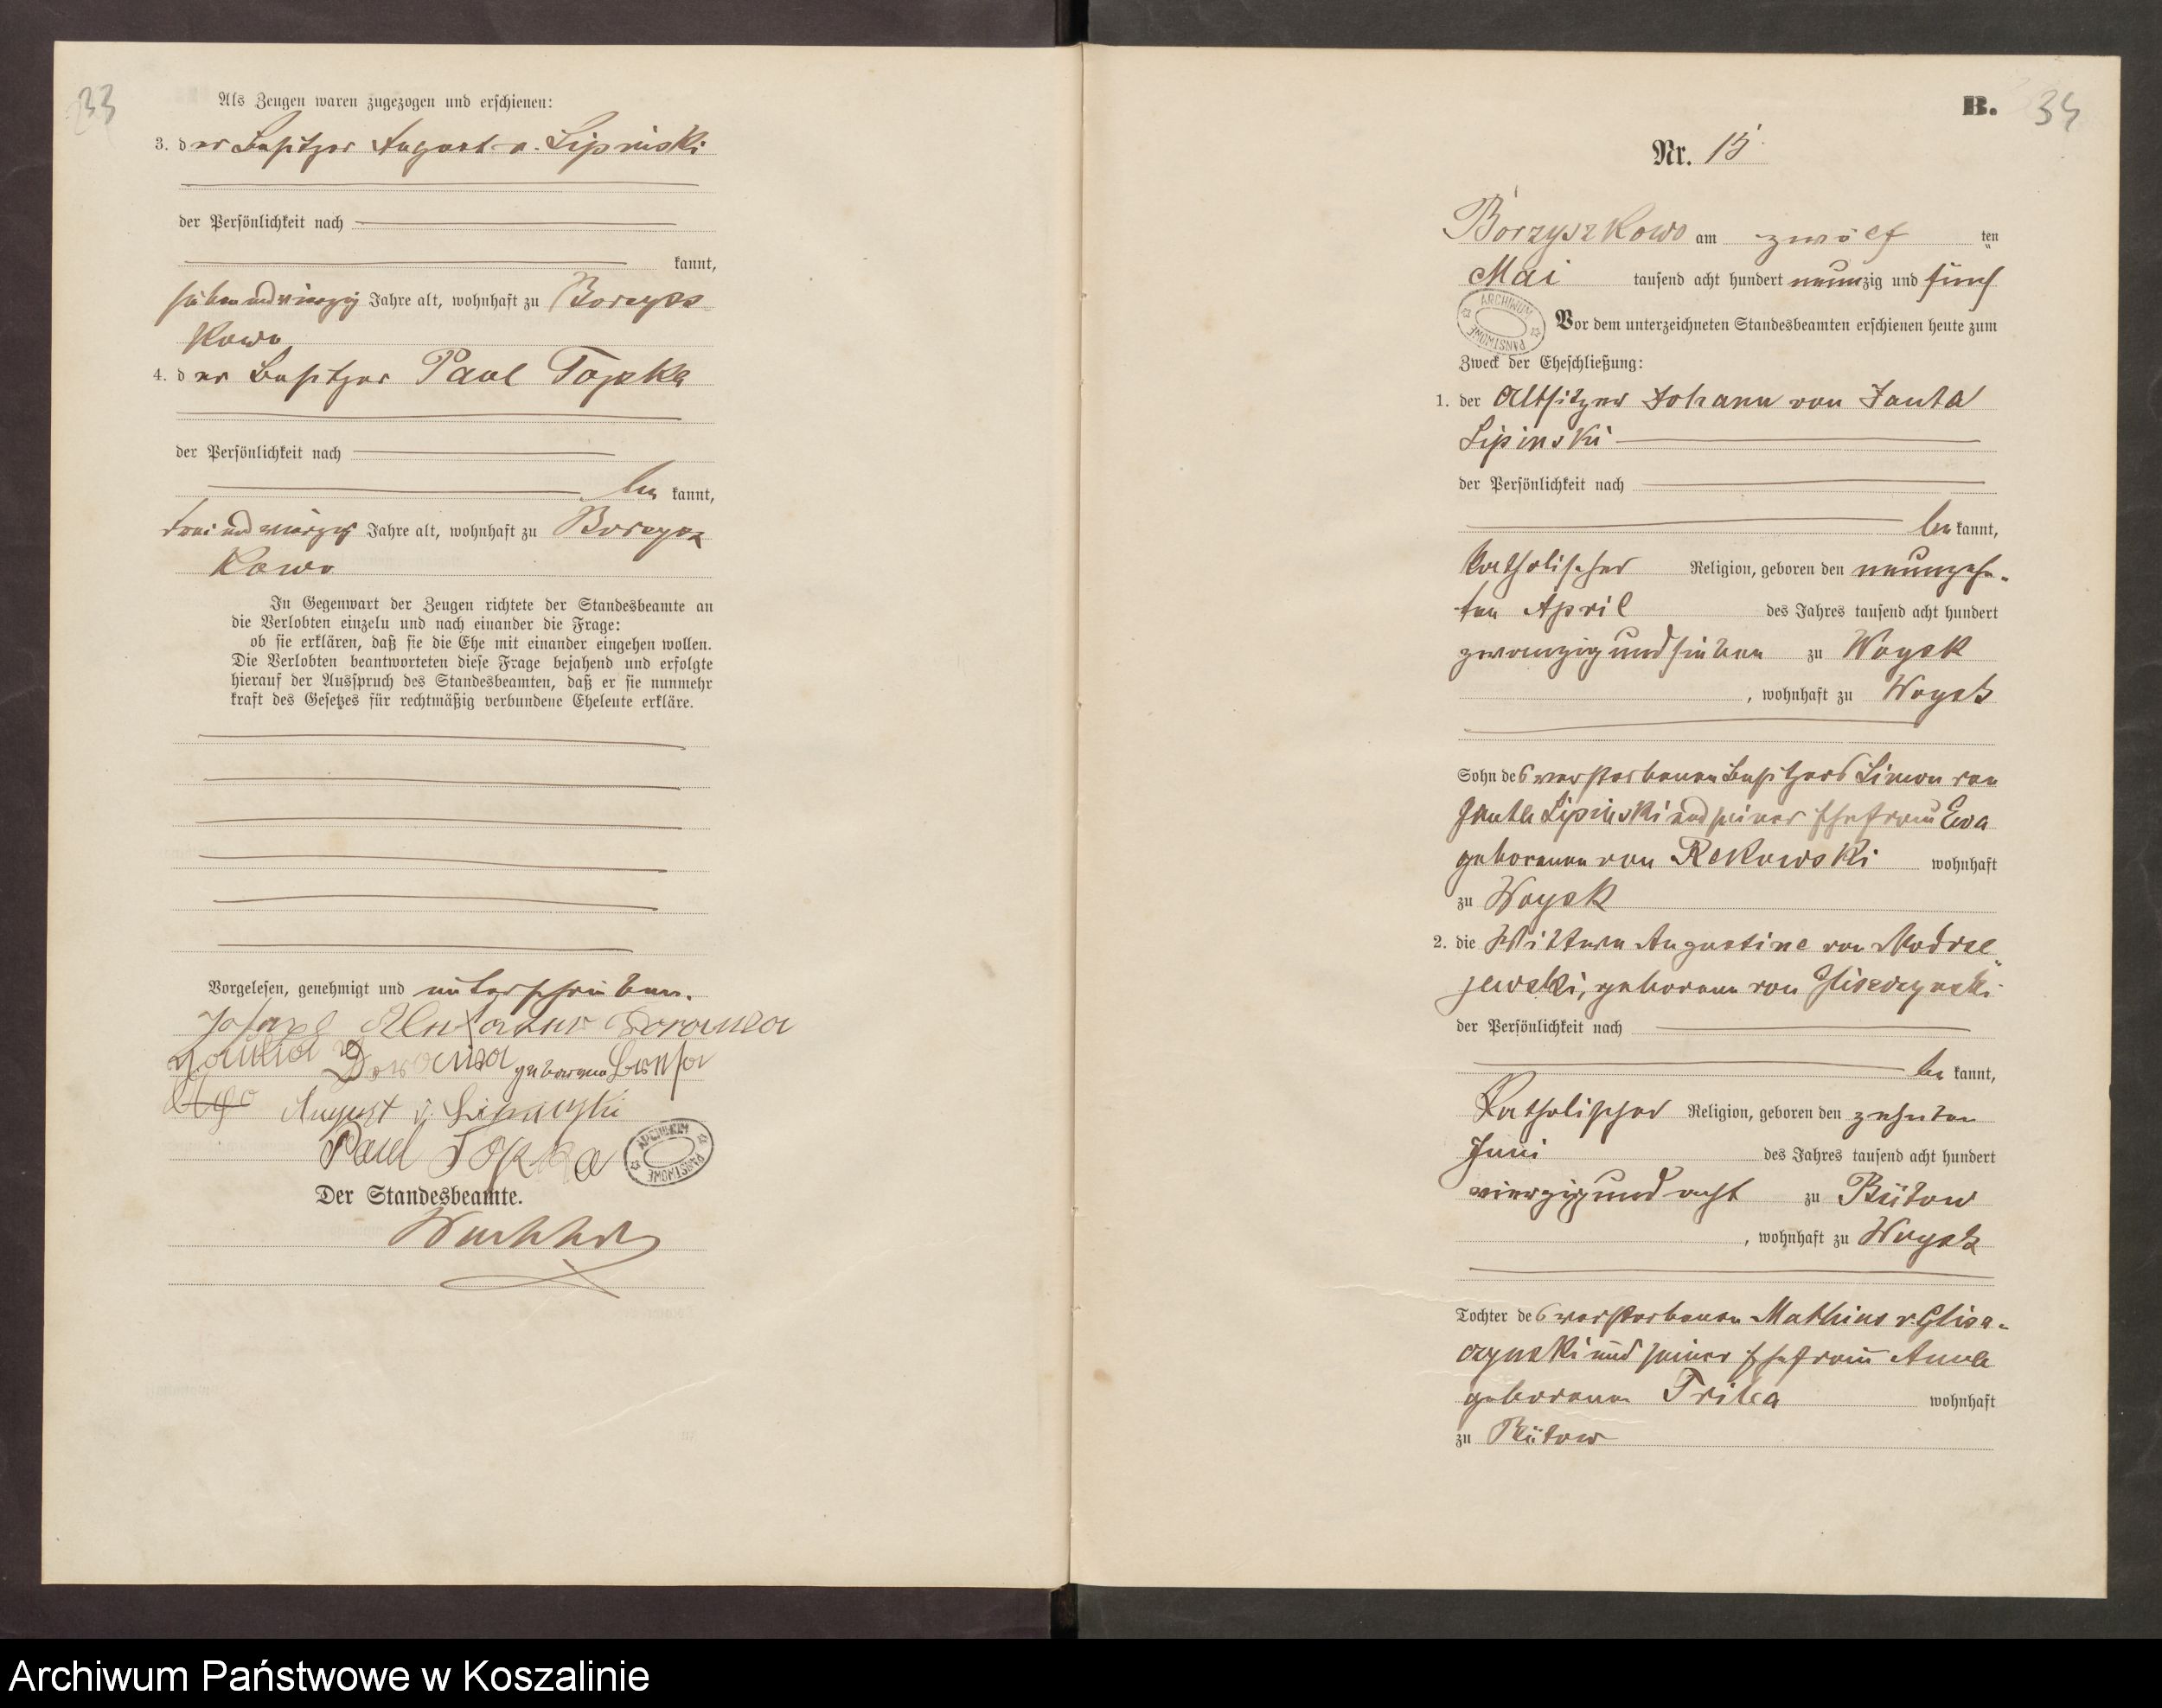 33
Als Zeugen waren zugezogen und erschienen:
3. der Besitzer August v. Lipinski
der Persönlichkeit nach
kannt,
sieben und vierzig Jahre alt, wohnhaft zu Borzysz
kowo
4. der Besitzer Paul Topka
der Persönlichkeit nach
be kannt,
drei und vierzig Jahre alt, wohnhaft zu Borzysz
kowo
In Gegenwart der Zeugen richtete der Standesbeamte an
die Verlobten einzeln und nach einander die Frage:
ob sie erklären, daß sie die Ehe mit einander eingehen wollen.
Die Verlobten beantworteten diese Frage bejahend und erfolgte
hierauf der Ausspruch des Standesbeamten, daß er sie nunmehr
kraft des Gesetzes für rechtmäßig verbundene Eheleute erkläre.
Vorgelesen, genehmigt und unterschrieben.
geborene
August v. Lipinski
Paul Topka
ARCHIWUM PAŃSTWOWE
Der Standesbeamte.
B. 34
Nr. 15
Borzyszkowo am zwölf ten
Mai tausend acht hundert neunzig und fünf
ARCHIWUM PAŃSTWOWE
Vor dem unterzeichneten Standesbeamten erschienen heute zum
Zweck der Eheschließung:
1. der Altsitzer Johann von Janta
Lipinski
der Persönlichkeit nach
be kannt,
katholischer Religion, geboren den neunzehn-
ten April des Jahres tausend acht hundert
zwanzig und sieben zu Woysk
, wohnhaft zu Woysk
Sohn des verstorbenen Besitzers Simon von
Janta Lipinski und seiner Ehefrau Eva
geborenen von Rekowski wohnhaft
zu Woysk
2. die Wittwe Augustine von Modrze
jewski, geborene von Gliszczynski
der Persönlichkeit nach
be kannt,
katholischer Religion, geboren den zehnten
Juni des Jahres tausend acht hundert
vierzig und acht zu Bütow
, wohnhaft zu Woysk
Tochter des verstorbenen Mathias v Glisz-
czynski und seiner Ehefrau Anna
geborenen wohnhaft
zu Bütow
Archiwum Państwowe w Koszalinie